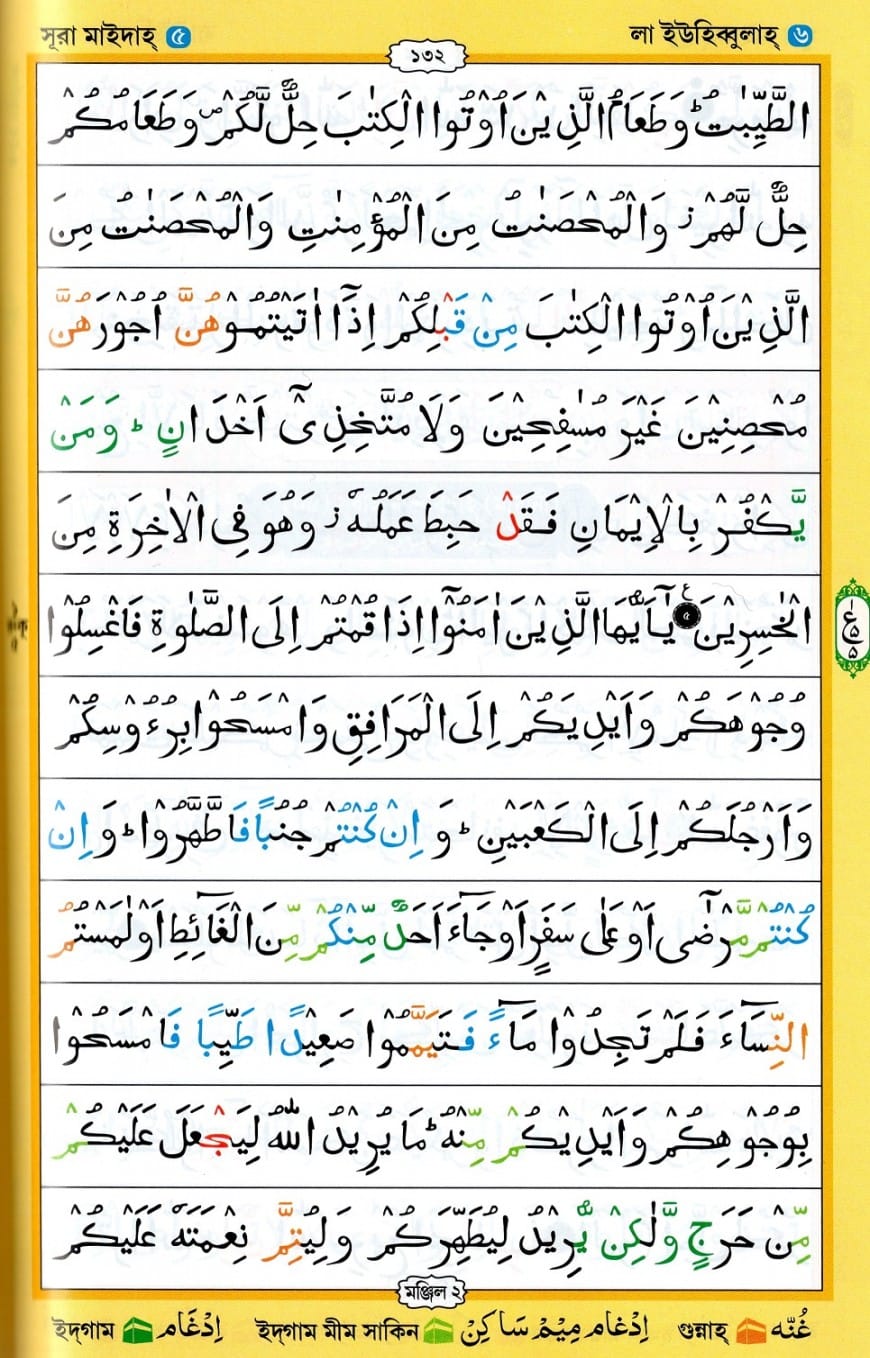 সূরা মাইদাহ্ ৫
১৩২
লা ইউহিব্বুলাহ্ ৬
الطَّيِّبٰتُ ؕ وَطَعَامُ الَّذِيْنَ اُوْتُوا الْكِتٰبَ حِلٌّ لَّكُمْ ۪ وَطَعَامُكُمْ
حِلٌّ لَّهُمْ ؗ وَالْمُحْصَنٰتُ مِنَ الْمُؤْمِنٰتِ وَالْمُحْصَنٰتُ مِنَ
الَّذِيْنَ اُوْتُوا الْكِتٰبَ مِنْ قَبْلِكُمْ اِذَاۤ اٰتَيْتُمُوْهُنَّ اُجُوْرَهُنَّ
مُحْصِنِيْنَ غَيْرَ مُسٰفِحِيْنَ وَلَا مُتَّخِذِيْۤ اَخْدَانٍ ؕ وَمَنْ
يَّكْفُرْ بِالْاِيْمَانِ فَقَدْ حَبِطَ عَمَلُهٗ ؗ وَهُوَ فِى الْاٰخِرَةِ مِنَ
الْخٰسِرِيْنَ ۵ يٰۤاَيُّهَا الَّذِيْنَ اٰمَنُوْۤا اِذَا قُمْتُمْ اِلَى الصَّلٰوةِ فَاغْسِلُوْا
وُجُوْهَكُمْ وَاَيْدِيَكُمْ اِلَى الْمَرَافِقِ وَامْسَحُوْا بِرُءُوْسِكُمْ
وَاَرْجُلَكُمْ اِلَى الْكَعْبَيْنِ ؕ وَ اِنْ كُنْتُمْ جُنُبًا فَاطَّهَّرُوْا ؕ وَ اِنْ
كُنْتُمْ مَّرْضٰۤى اَوْ عَلٰى سَفَرٍ اَوْ جَآءَ اَحَدٌ مِّنْكُمْ مِّنَ الْغَآئِطِ اَوْ لٰمَسْتُمُ
النِّسَآءَ فَلَمْ تَجِدُوْا مَآءً فَتَيَمَّمُوْا صَعِيْدًا طَيِّبًا فَامْسَحُوْا
بِوُجُوْهِكُمْ وَاَيْدِيْكُمْ مِّنْهُ ؕ مَا يُرِيْدُ اللّٰهُ لِيَجْعَلَ عَلَيْكُمْ
مِّنْ حَرَجٍ وَّلٰكِنْ يُّرِيْدُ لِيُطَهِّرَكُمْ وَلِيُتِمَّ نِعْمَتَهٗ عَلَيْكُمْ
মঞ্জিল ২
ইদ্গাম اِدْغَام ইদ্গাম মীম সাকিন اِدْغَام مِيْمْ سَاكِنْ গুন্নাহ্ غُنَّه